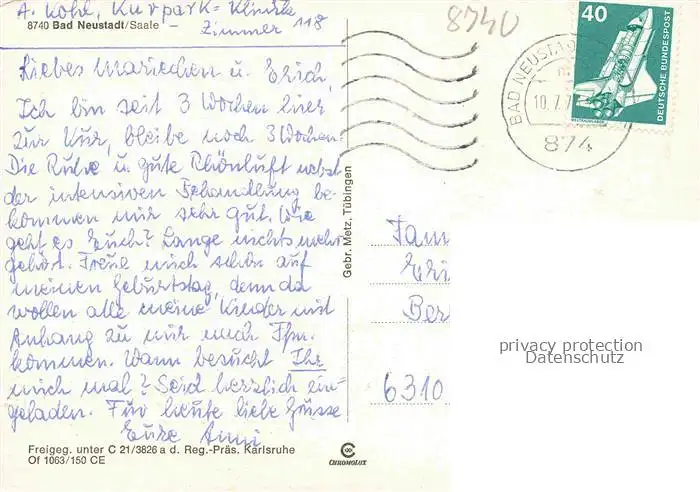 A. Kohl, Kurpark-Klinik
8740 Bad Neustadt/Saale - Zimmer 118
8740
Liebes Mariechen u. Erich,
Ich bin seit 3 Wochen hier
zur Kur, bleibe noch 3 Wochen.
Die Ruhe u. gute Rhönluft nebst
der intensiven Behandlung be-
kommen mir sehr gut. Wie
geht es Euch? Lange nichts mehr
gehört. Freue mich schon auf
meinen Geburtstag, denn da
wollen alle meine Kinder mit
Anhang zu mir nach
kommen. Wann besucht Ihr
mich mal? Seid herzlich ein-
geladen. Für heute liebe Grüsse
Eure Anni
Freigeg. unter C 21/3826 a d. Reg.-Präs. Karlsruhe
Of 1063/150 CE
Gebr. Metz, Tübingen
CHROMOLUX
BAD NEUSTA
10.7.7
874
40
DEUTSCHE BUNDESPOST
WELTRAUMLABOR
Fam
Eri
Ber
6310
privacy protection
Datenschutz